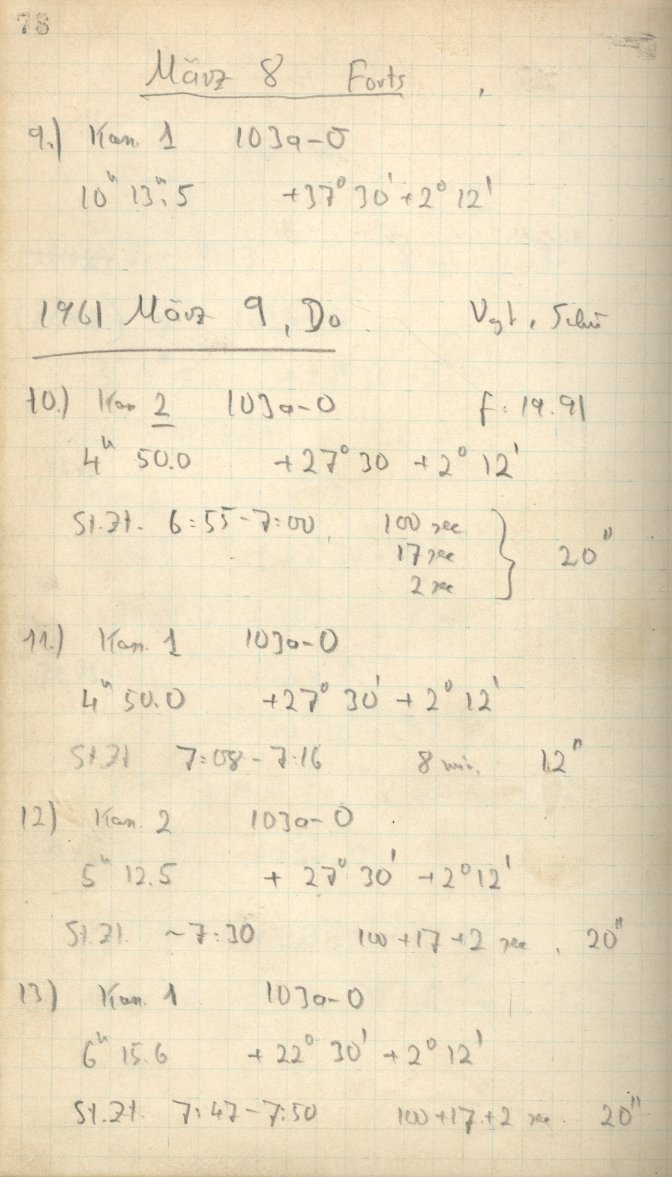 78
März 8 Forts
9.) Kam. 1 103a-O
10ʰ 13ᵐ.5 +37° 30' +2° 12'
1961 März 9, Do
10.) Kam 2 103a-O f: 19.91
4ʰ 50.0 +27° 30 +2° 12'
St.Zt. 6:55-7:00, 100 sec
17 sec
2 sec } 20"
11.) Kam. 1 103a-O
4ʰ 50.0 +27° 30' +2° 12'
St.Zt 7:08-7:16 8 min. 12"
12) Kam. 2 103a-O
5ʰ 12.5 + 27° 30' +2° 12'
St.Zt. ~7:30 100+17+2 sec. 20"
13) Kam. 1 103a-O
6ʰ 15.6 +22° 30' +2° 12'
St.Zt. 7:47-7:50 100+17+2 sec. 20"